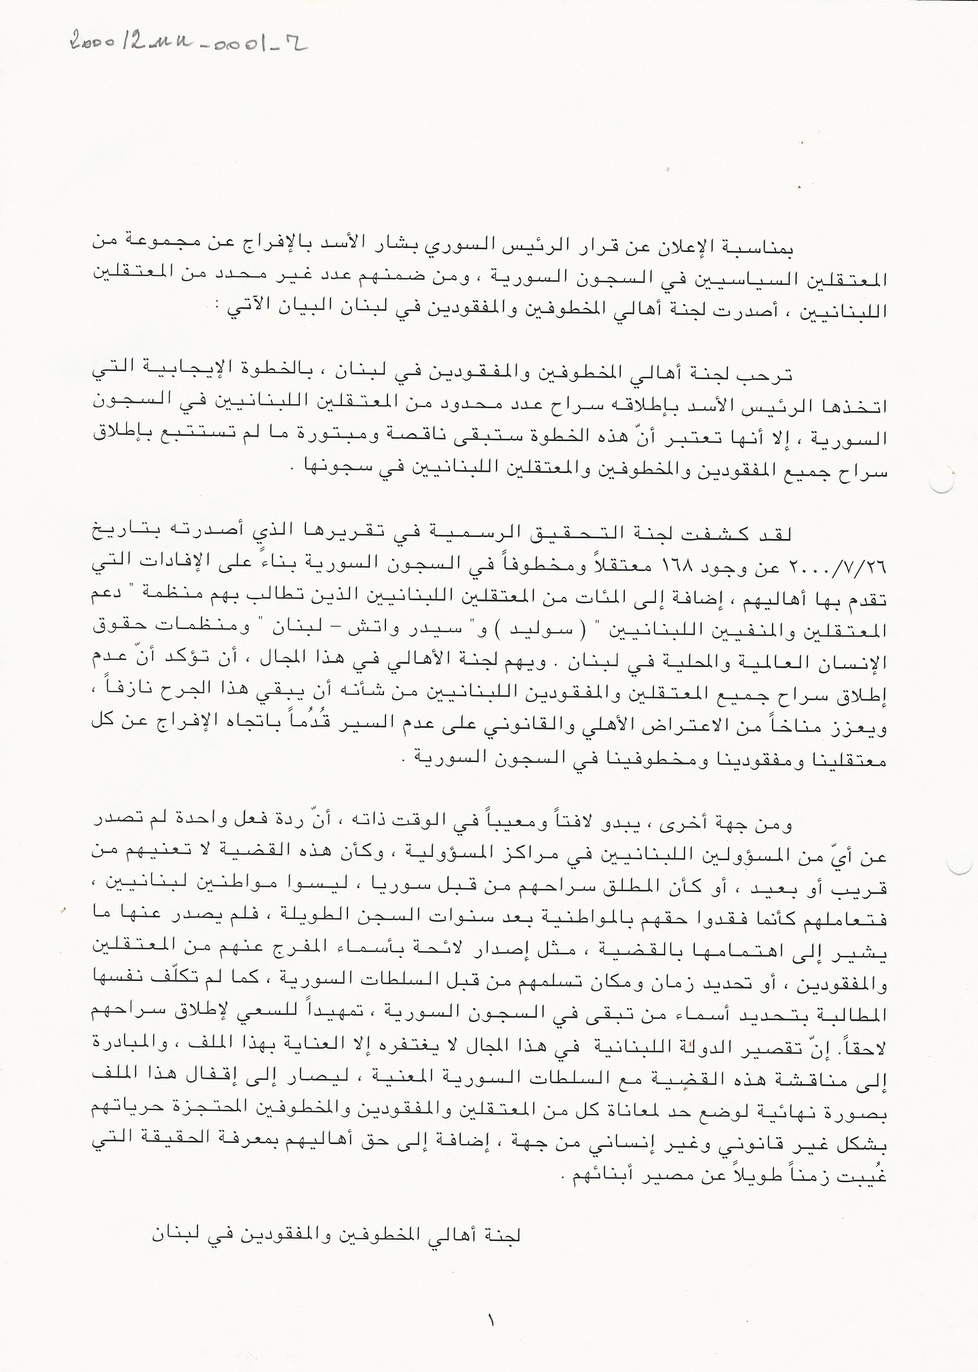 2000/2_MM_0001_7
بمناسبة الإعلان عن قرار الرئيس السوري بشار الأسد بالإفراج عن مجموعة من
المعتقلين السياسيين في السجون السورية ، ومن ضمنهم عدد غير محدد من المعتقلين
اللبنانيين ، أصدرت لجنة أهالي المخطوفين والمفقودين في لبنان البيان الآتي :
ترحب لجنة أهالي المخطوفين والمفقودين في لبنان ، بالخطوة الإيجابية التي
اتخذها الرئيس الأسد بإطلاقه سراح عدد محدود من المعتقلين اللبنانيين في السجون
السورية ، إلا أنها تعتبر أنّ هذه الخطوة ستبقى ناقصة ومبتورة ما لم تستتبع بإطلاق
سراح جميع المفقودين والمخطوفين والمعتقلين اللبنانيين في سجونها .
لقد كشفت لجنة التحقيق الرسمية في تقريرها الذي أصدرته بتاريخ
٢٠٠٠/٧/٢٦ عن وجود ١٦٨ معتقلاً ومخطوفاً في السجون السورية بناءً على الإفادات التي
تقدم بها أهاليهم ، إضافة إلى المئات من المعتقلين اللبنانيين الذين تطالب بهم منظمة " دعم
المعتقلين والمنفيين اللبنانيين " ( سوليد ) و" سيدر واتش – لبنان " ومنظمات حقوق
الإنسان العالمية والمحلية في لبنان . ويهم لجنة الأهالي في هذا المجال ، أن تؤكد أنّ عدم
إطلاق سراح جميع المعتقلين والمفقودين اللبنانيين من شأنه أن يبقي هذا الجرح نازفاً ،
ويعزز مناخاً من الاعتراض الأهلي والقانوني على عدم السير قُدُماً باتجاه الإفراج عن كل
معتقلينا ومفقودينا ومخطوفينا في السجون السورية .
ومن جهة أخرى ، يبدو لافتاً ومعيباً في الوقت ذاته ، أنّ ردة فعل واحدة لم تصدر
عن أيّ من المسؤولين اللبنانيين في مراكز المسؤولية ، وكأن هذه القضية لا تعنيهم من
قريب أو بعيد ، أو كأن المطلق سراحهم من قبل سوريا ، ليسوا مواطنين لبنانيين ،
فتعاملهم كأنما فقدوا حقهم بالمواطنية بعد سنوات السجن الطويلة ، فلم يصدر عنها ما
يشير إلى اهتمامها بالقضية ، مثل إصدار لائحة بأسماء المفرج عنهم من المعتقلين
والمفقودين ، أو تحديد زمان ومكان تسلمهم من قبل السلطات السورية ، كما لم تكلّف نفسها
المطالبة بتحديد أسماء من تبقى في السجون السورية ، تمهيداً للسعي لإطلاق سراحهم
لاحقاً. إنّ تقصير الدولة اللبنانية في هذا المجال لا يغتفره إلا العناية بهذا الملف ، والمبادرة
إلى مناقشة هذه القضية مع السلطات السورية المعنية ، ليصار إلى إقفال هذا الملف
بصورة نهائية لوضع حد لمعاناة كل من المعتقلين والمفقودين والمخطوفين المحتجزة حرياتهم
بشكل غير قانوني وغير إنساني من جهة ، إضافة إلى حق أهاليهم بمعرفة الحقيقة التي
غُيبت زمناً طويلاً عن مصير أبنائهم .
لجنة أهالي المخطوفين والمفقودين في لبنان
١